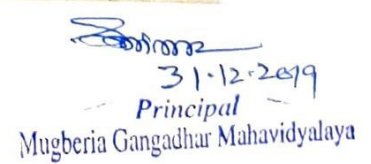 31.12.2019
Principal
Mugberia Gangadhar Mahavidyalaya